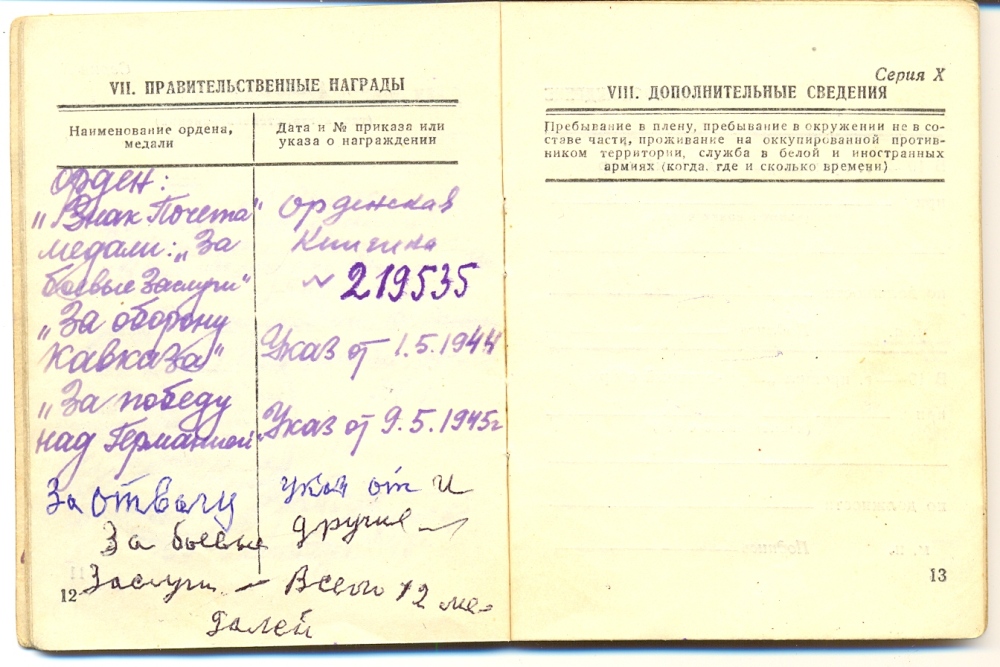 VII. ПРАВИТЕЛЬСТВЕННЫЕ НАГРАДЫ
Наименование ордена, медали
Дата и № приказа или указа о награждении
Орден:
„Знак Почета“ Орденская
медали: „За Книжка
боевые Заслуги“ № 219535
„За оборону
Кавказа“ Указ от 1.5.1944
„За победу
над Германией“ Указ от 9.5.1945г
За отвагу указ от и
За боевые другие
Заслуги – Всего 12 ме-
далей
12
Серия X
VIII. ДОПОЛНИТЕЛЬНЫЕ СВЕДЕНИЯ
Пребывание в плену, пребывание в окружении не в со-
ставе части, проживание на оккупированной против-
ником территории, служба в белой и иностранных
армиях (когда, где и сколько времени)
13